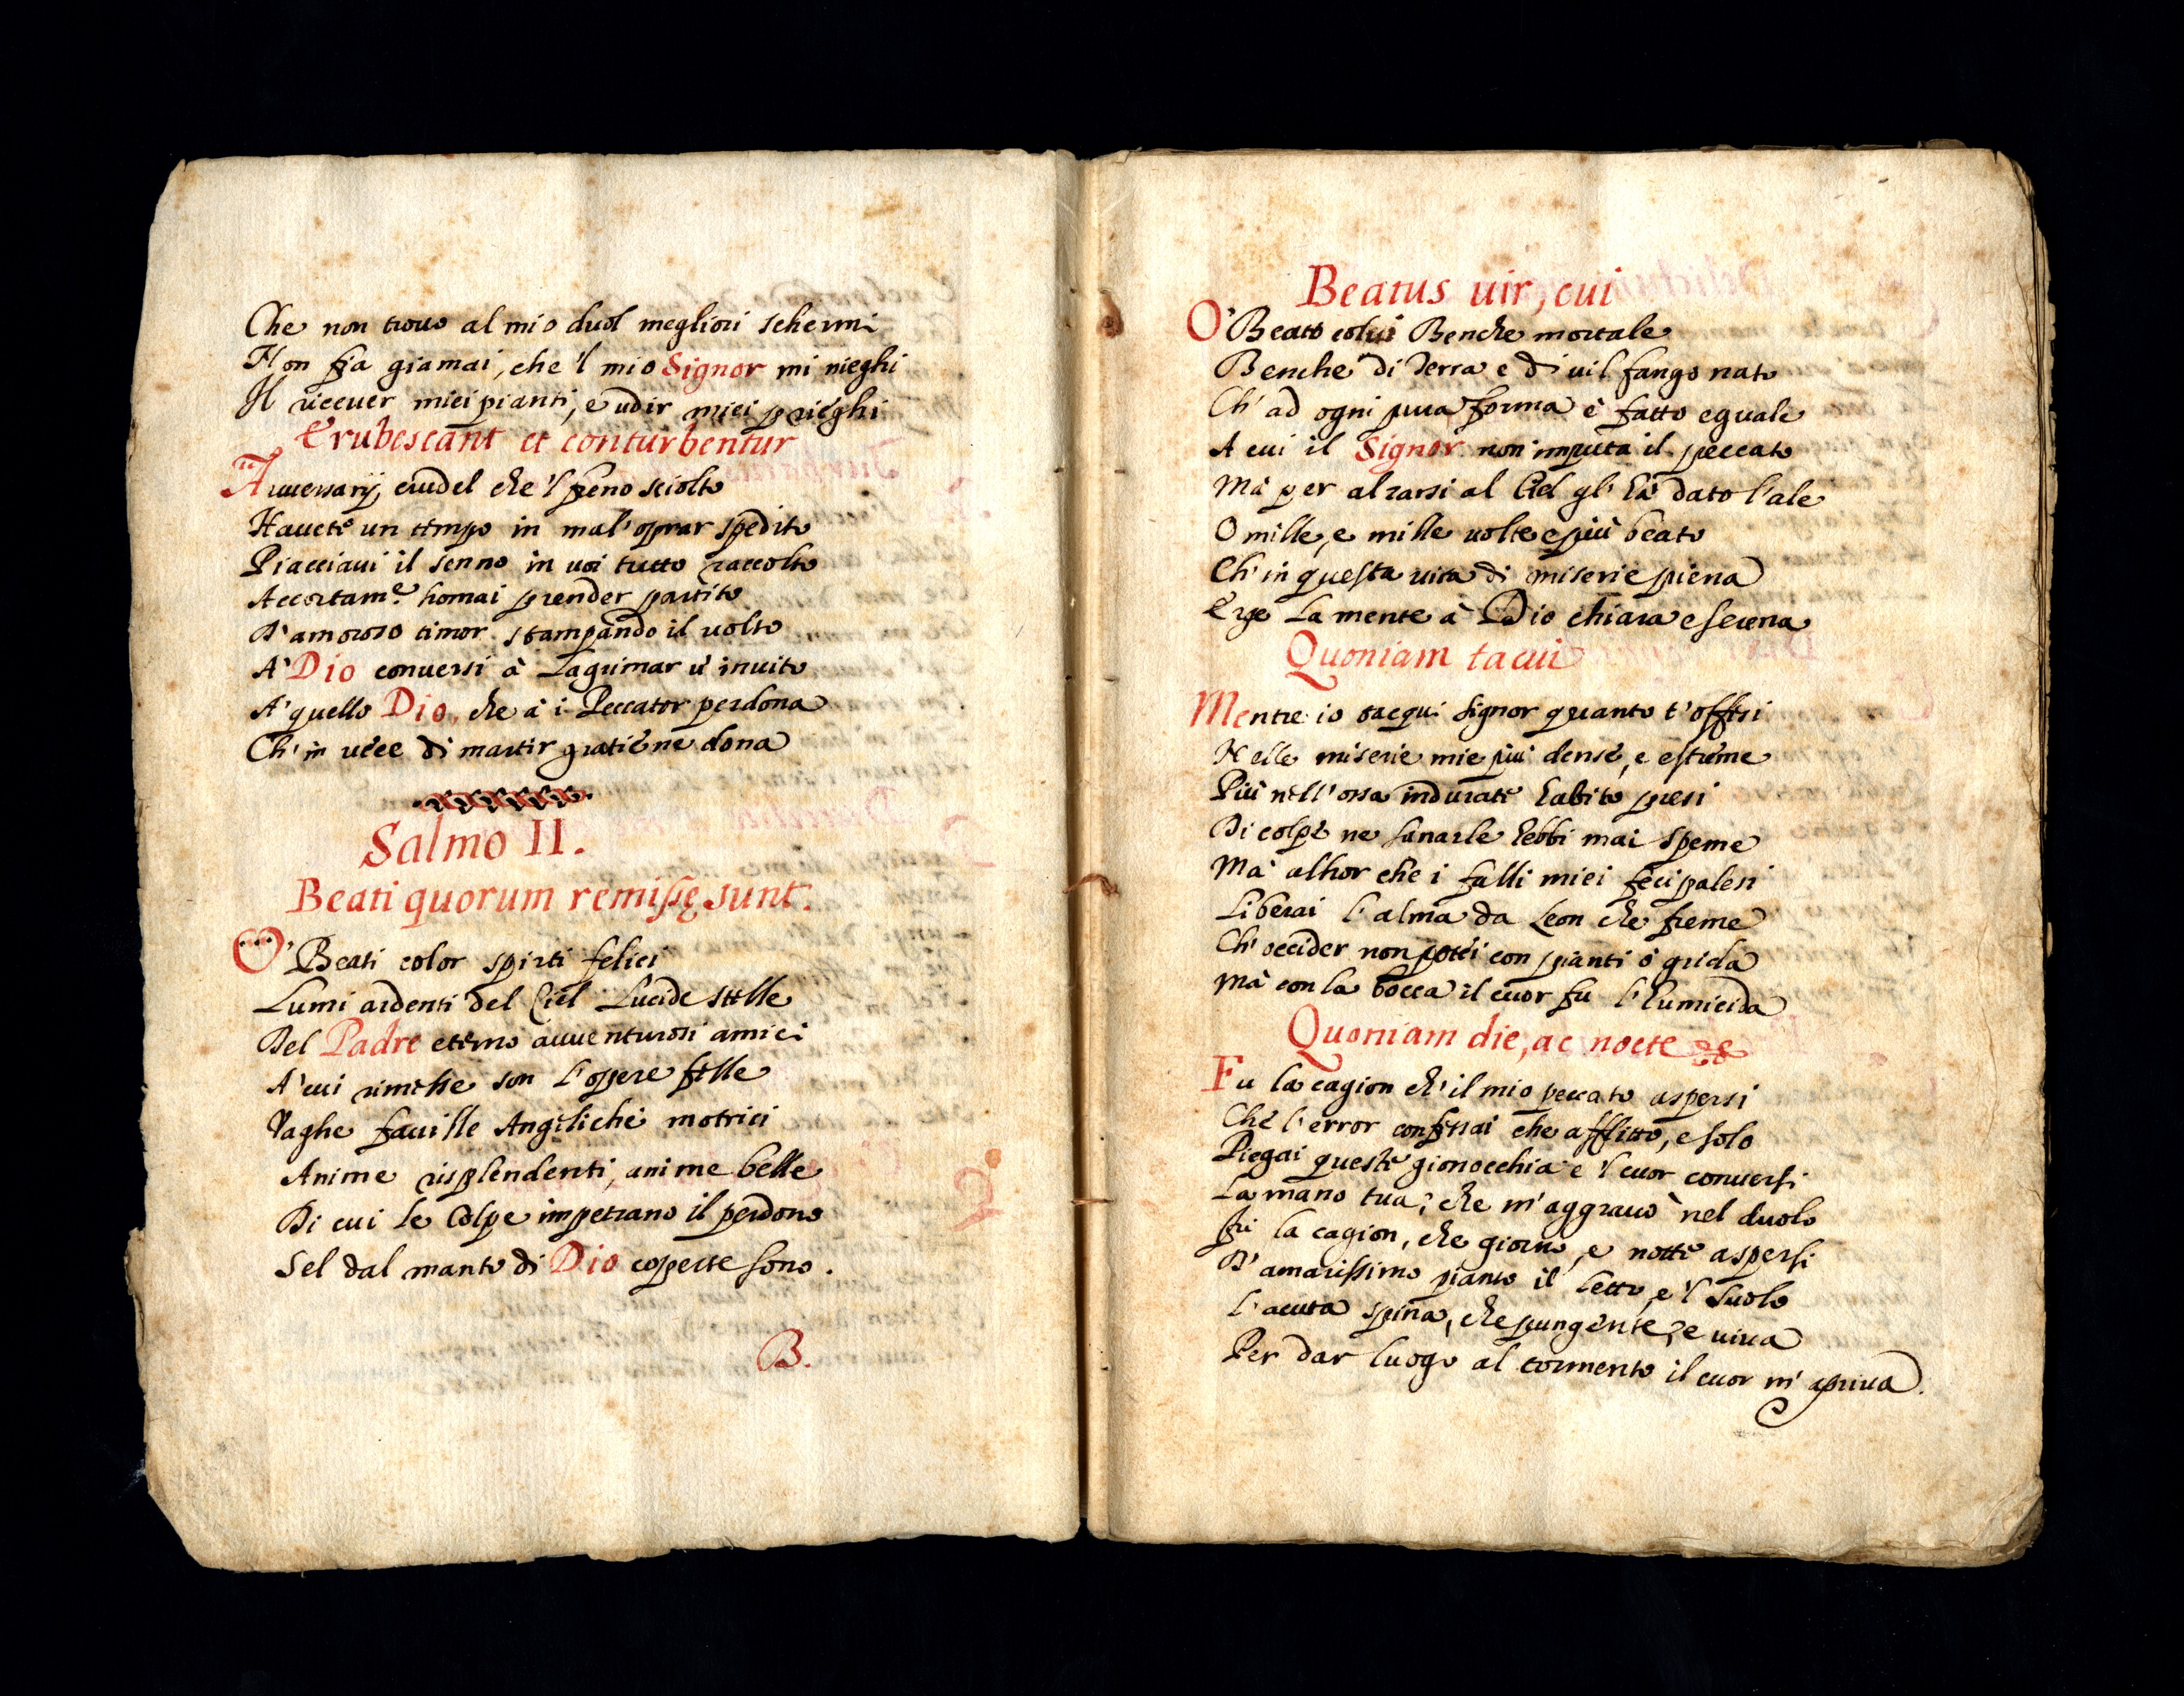 Che non trouo al mio duol megliori schermi
Non fia giamai, che 'l mio Signor mi nieghi
Il riceuer miei pianti, e udir miei prieghi
Erubescant et conturbentur
Auuersarij, crudel che 'l freno sciolto
Hauete un tempo in mal' oprar spedito
Piacciaui il senno in uoi tutto raccolto
Accortam.e homai prender partito
D'amoroso timor stampando il uolto
A' Dio conuersi à Lagrimar u' inuito
A' quello Dio, che à i Peccator perdona
Ch' in uece di martir gratie ne dona
Salmo II.
Beati quorum remissę sunt.
O' Beati color spirti felici
Lumi ardenti del Ciel Lucide stelle
Del Padre eterno auuenturosi amici
A' cui rimesse son l'opere felle
Vaghe fauille Angeliche motrici
Anime risplendenti, anime belle
Di cui le Colpe impetrano il perdono
Sel dal manto di Dio coperte sono.
B.
Beatus uir, cui
O' Beato colui Benche mortale
Benche di Terra e di uil fango nato
Ch' ad ogni pura forma è fatto eguale
A cui il Signor non imputa il peccato
Mà per alzarsi al Ciel gl' hà dato l'ale
O mille, e mille uolte e più beato
Ch' in questa uita di miserie piena
Erge La mente à Dio chiara e serena
Quoniam tacui
Mentre io tacqui Signor quanto t'offesi
Nelle miserie mie più dense, e estreme
Più nell'ossa indurate habito presi
Di colpe ne sanarle hebbi mai speme
Mà alhor che i falli miei feci palesi
Liberai l'alma da Leon che freme
Ch' occider non potei con pianti ò grida
Mà con la bocca il cuor fu l'humicida
Quoniam die, ac nocte
Fu la cagion ch' il mio peccato aspersi
Che l'error confessai che afflitto, e solo
Piegai queste gionocchia e 'l cuor conuersi
La mano tua; che m'aggrauò nel duolo
Fu la cagion, che giorno, e notte aspersi
D' amarissimo pianto il letto, e 'l suolo
L'acuta spina, che pungente, e uiua
Per dar luogo al tormento il cuor m' apriua.